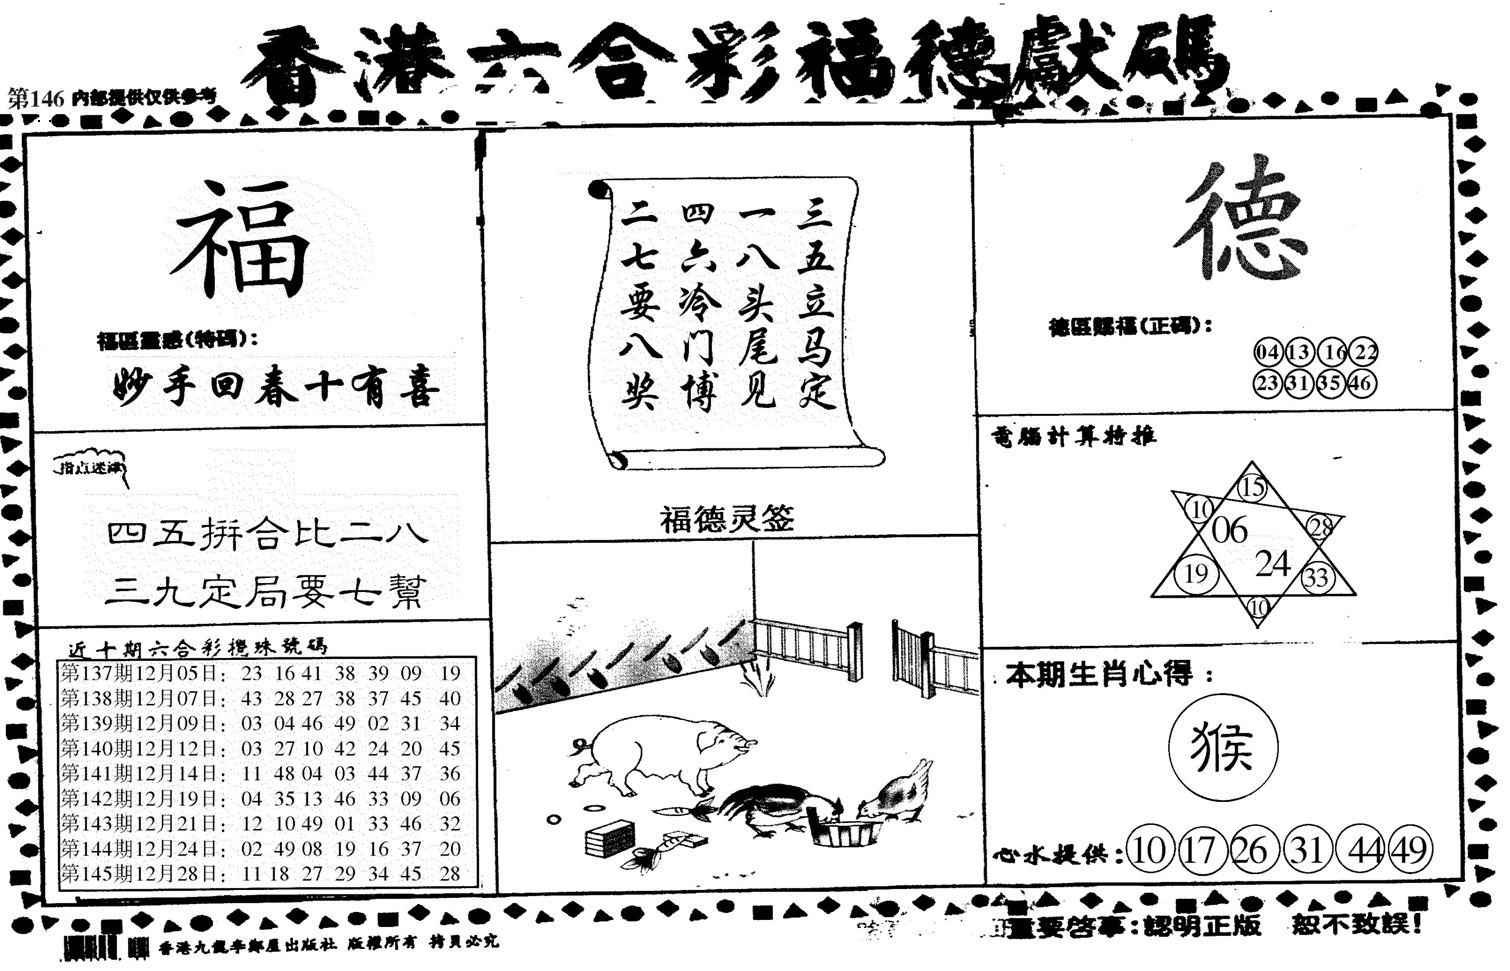 香港六合彩福德獻碼
第146 内部提供仅供参考
福
福區靈感(特碼):
妙手回春十有喜
指点迷津
四五拼合比二八
三九定局要七幫
近十期六合彩攪珠號碼
第137期12月05日: 23 16 41 38 39 09 19
第138期12月07日: 43 28 27 38 37 45 40
第139期12月09日: 03 04 46 49 02 31 34
第140期12月12日: 03 27 10 42 24 20 45
第141期12月14日: 11 48 04 03 44 37 36
第142期12月19日: 04 35 13 46 33 09 06
第143期12月21日: 12 10 49 01 33 46 32
第144期12月24日: 02 49 08 19 16 37 20
第145期12月28日: 11 18 27 29 34 45 28
三五立马定
一八头尾见
四六冷门博
二七要八奖
福德灵签
德
德區賜福(正碼):
04 13 16 22
23 31 35 46
電腦計算特推
15
10
28
06
24
19
33
10
本期生肖心得:
猴
心水提供: 10 17 26 31 44 49
香港九龍李鄭屋出版社 版權所有 拷貝必究
重要啓事:認明正版 恕不致誤!